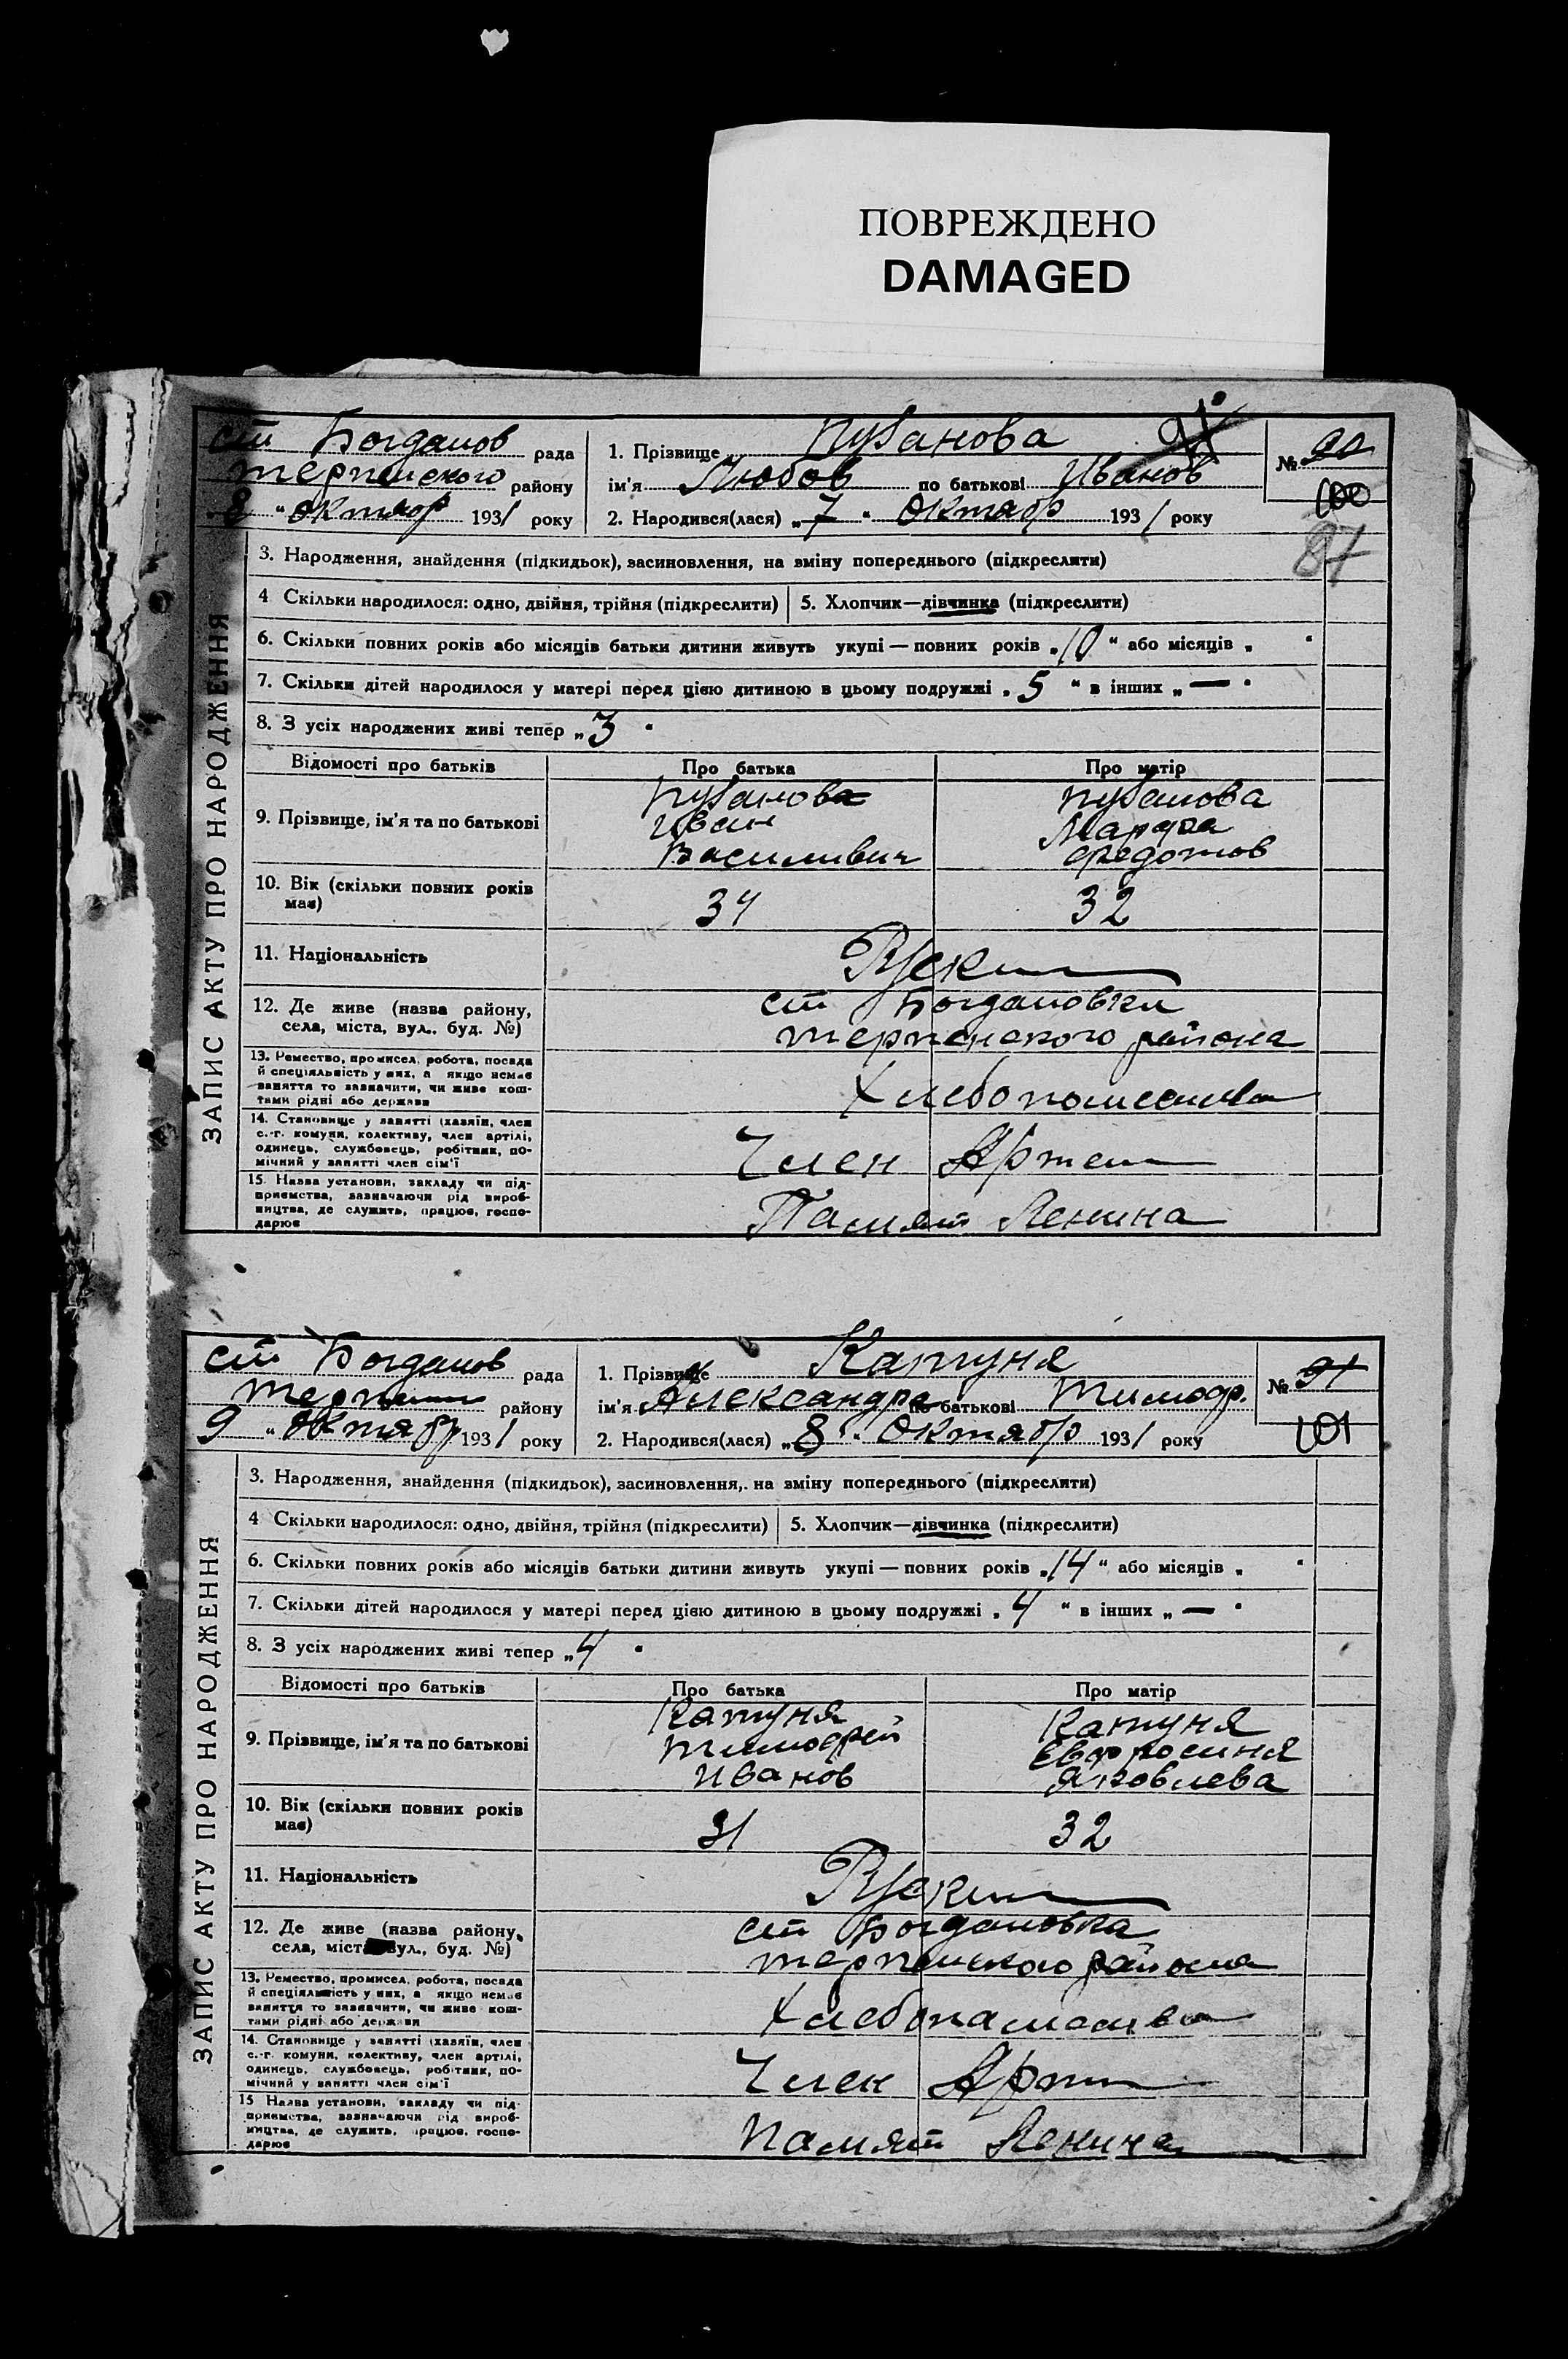 ПОВРЕЖДЕНО
DAMAGED
ЗАПИС АКТУ ПРО НАРОДЖЕННЯ
ст Богданов рада
Терпенского району
8 " октябр 1931 року
1. Прізвище Пуванова
ім'я Любов по батькові Иванов
2. Народився(лася) „7 " Октябр 1931 року
№ 90
100
91
87
3. Народження, знайдення (підкидьок), засиновлення, на зміну попереднього (підкреслити)
4 Скільки народилося: одно, двійня, трійня (підкреслити) 5. Хлопчик—дівчинка (підкреслити)
6. Скільки повних років або місяців батьки дитини живуть укупі — повних років „10 " або місяців „ "
7. Скільки дітей народилося у матері перед цією дитиною в цьому подружжі „ 5 " в інших „ — "
8. З усіх народжених живі тепер „ 3 "
Відомості про батьків Про батька Про матір
9. Прізвище, ім'я та по батькові
Пуванова
Иван
Василивич
Пуванова
Марфа
Федотов
10. Вік (скільки повних років має) 34 32
11. Національність Руски
12. Де живе (назва району, села, міста, вул., буд. №)
ст Богдановка
терпенского района
13. Ремество, промисел, робота, посада
й спеціяльність у них, а якщо немає
заняття то зазначити, чи живе кош-
тами рідні або держави
14. Становище у занятті (хазяїн, член
с.-г. комуни, колективу, член артілі,
одинець, службовець, робітник, по-
мічний у занятті член сім'ї
Член Артел
15. Назва установи, закладу чи під-
приємства, зазначаючи рід вироб-
ництва, де служить, працює, госпо-
дарює
Памят Ленина
ЗАПИС АКТУ ПРО НАРОДЖЕННЯ
ст Богданов рада
району
9 " октябр 1931 року
1. Прізвище Капуня
ім'я Александра по батькові Тимофр.
2. Народився(лася) „8 " Октябр 1931 року
№ 91
101
3. Народження, знайдення (підкидьок), засиновлення, на зміну попереднього (підкреслити)
4 Скільки народилося: одно, двійня, трійня (підкреслити) 5. Хлопчик—дівчинка (підкреслити)
6. Скільки повних років або місяців батьки дитини живуть укупі — повних років „14 " або місяців „ "
7. Скільки дітей народилося у матері перед цією дитиною в цьому подружжі „ 4 " в інших „ — "
8. З усіх народжених живі тепер „ 4 "
Відомості про батьків Про батька Про матір
9. Прізвище, ім'я та по батькові
Капуня
Тимофей
Иванов
Капуня
Евфросиня
Яковлева
10. Вік (скільки повних років має) 31 32
11. Національність Руски
12. Де живе (назва району, села, міста, вул., буд. №)
ст Богдановка
терпенского района
13. Ремество, промисел, робота, посада
й спеціяльність у них, а якщо немає
заняття то зазначити, чи живе кош-
тами рідні або держави
14. Становище у занятті (хазяїн, член
с.-г. комуни, колективу, член артілі,
одинець, службовець, робітник, по-
мічний у занятті член сім'ї
Член Арт
15 Назва установи, закладу чи під-
приємства, зазначаючи рід вироб-
ництва, де служить, працює, госпо-
дарює
Памят Ленина